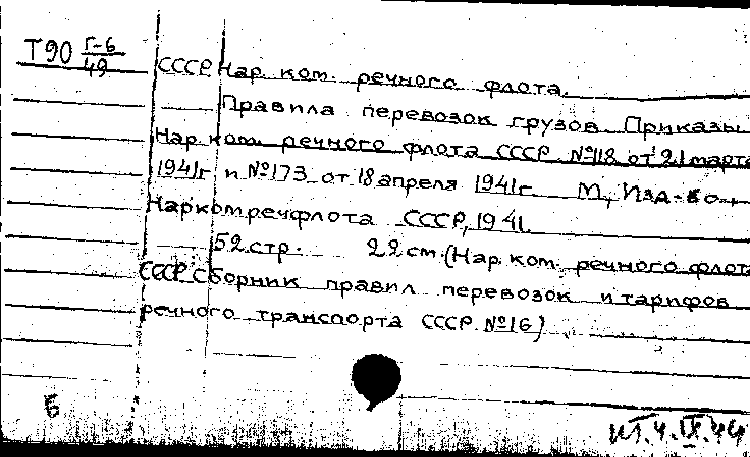 Т90 Г-6/49
СССР. Нар. ком. речного флота.
Правила перевозок грузов. Приказы
Нар. ком. речного флота СССР №118 от 21 марта
1941г и №173 от 18 апреля 1941г. М, Изд-во
Наркомречфлота СССР, 1941.
52 стр. 22 см. (Нар. ком. речного флота
СССР. Сборник правил перевозок и тарифов
речного транспорта СССР №16)
Б